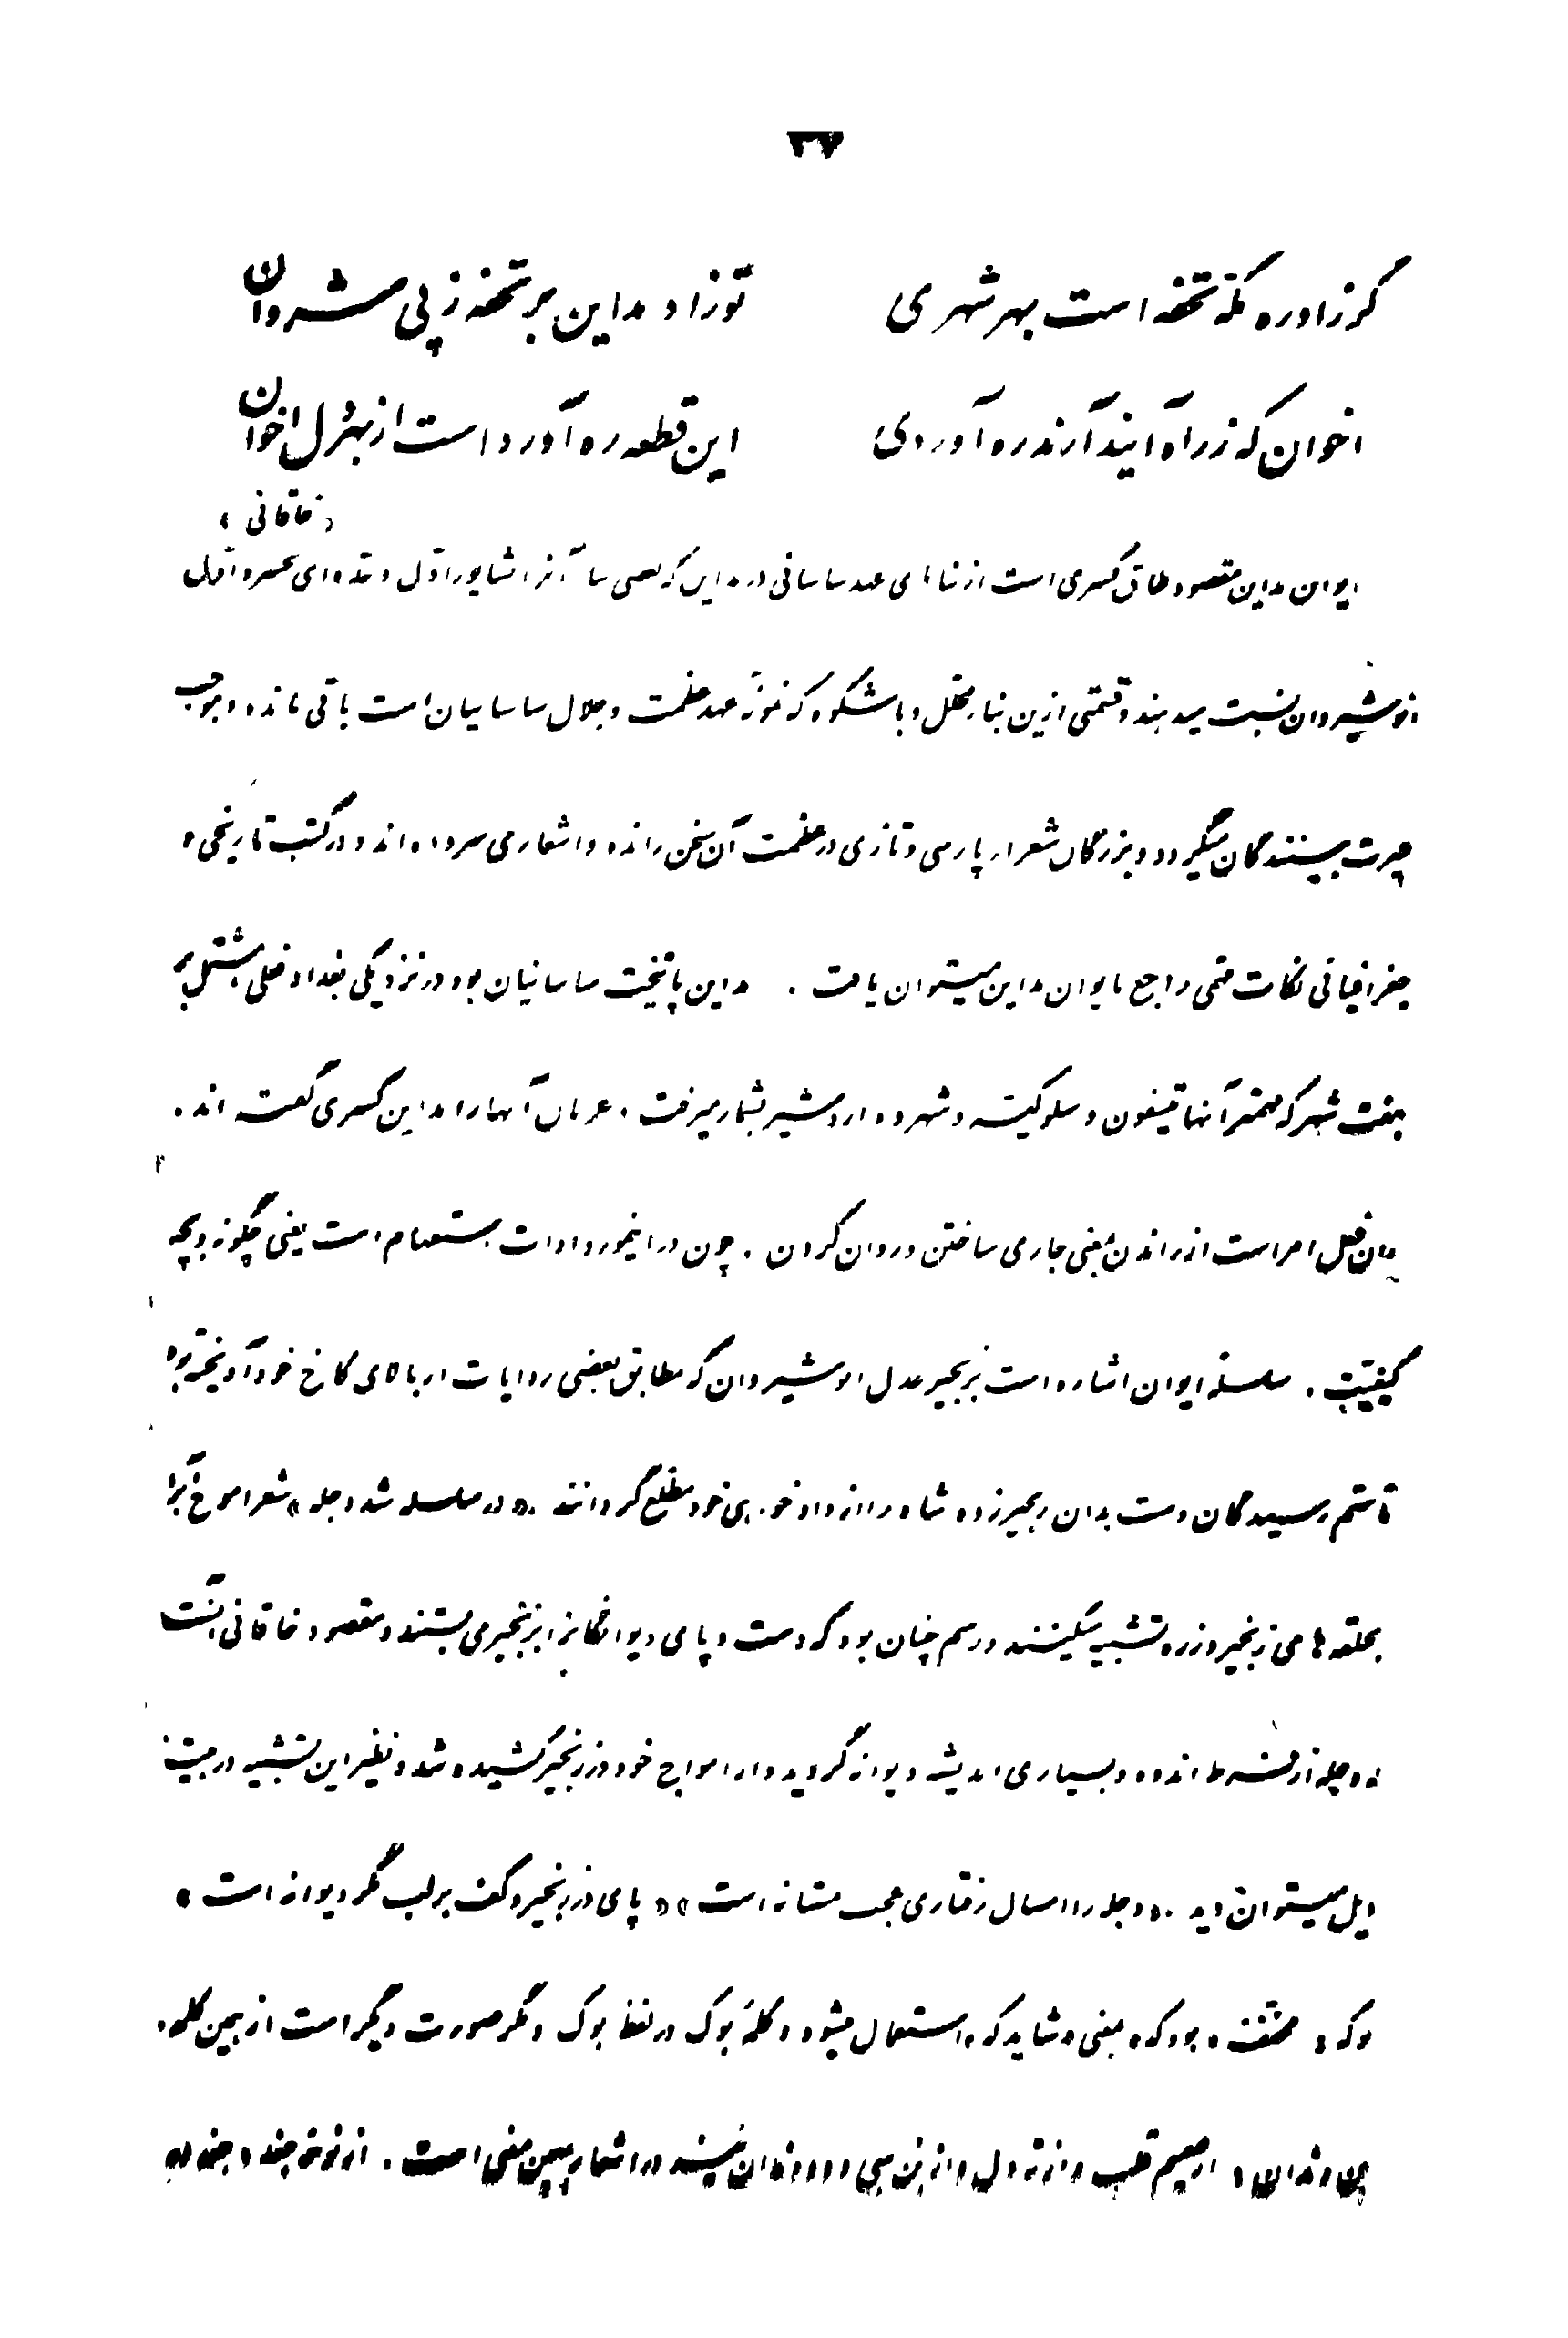 ۳۷
گر زاد ره مکه تحفه است بهر شهری
تو زاد مداین بر تحفه ز پی شروان
اخوان که ز راه آیند آرند ره آوردی
این قطعه ره آورد است از بهر دل اخوان
«خاقانی»
ایوان مداین مقصود طاق کسری است از بناهای عهد ساسانی در مداین که بعضی بنا آنرا بشاپور اول و عده‌ای بخسرو اول
انوشیروان نسبت میدهند و قسمتی ازین بنا مجلل و باشکوه که نمونهٔ عهد عظمت و جلال ساسانیان است باقی مانده و موجب
حیرت بینندگان میگردد و بزرگان شعرا پارسی و تازی در عظمت آن سخن رانده و اشعاری سروده‌اند و در کتب تاریخی و
جغرافیائی نکات مهمی راجع بایوان مداین میتوان یافت . مداین پایتخت ساسانیان بود در نزدیکی بغداد فعلی مشتمل بر
هفت شهر که مهمتر آنها تیسفون و سلوکیه و شهر وه اردشیر بشمار میرفت ، عربان آنها را مداین کسری گفته اند .
ران فعل امر است از راندن بمعنی جاری ساختن و روان کردن . چون در اینمورد ادات استفهام است یعنی چگونه و بچه
کیفیت . سلسلهٔ ایوان اشاره است بزنجیر عدل انوشیروان که مطابق بعضی روایات از بالای کاخ خود آویخته بود
تا ستم رسیدگان دست بدان زنجیر زده شاه را از دادخواهی خود مطلع گردانند . «در سلسله شد دجله» شعرا موج آبرا
بحلقه های زنجیر و زره تشبیه میکنند و رسم چنان بود که دست و پای دیوانگانرا بزنجیر می بستند و مقصود خاقانی آنست
که دجله از اندوه و بسیاری اندیشه دیوانه گردیده و از امواج خود در زنجیر کشیده شد و نظیر این تشبیه در بیت
ذیل میتوان دید . «دجله را امسال رفتاری عجب مستانه است» «پای در زنجیر و کف بر لب مگر دیوانه است»
بوکه : مخفف «بود که» بمعنی «شاید که» استعمال میشود و کلمهٔ بوک در لفظ بوک و مگر صورت دیگر است از همین کلمه .
از صمیم قلب و از ته دل و از بن سی و دو دندان نیز در اشعار بهمین معنی است .